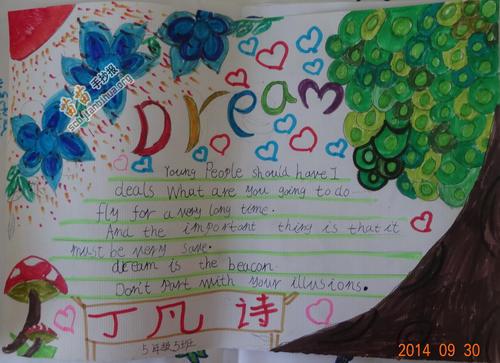 Dream
Young People should have I
deals What are you going to do
fly for a very long time.
And the important thing is that it
must be very sane.
dream is the beacon.
Don't part with your illusions.
丁凡诗
5年级5班
2014 09 30